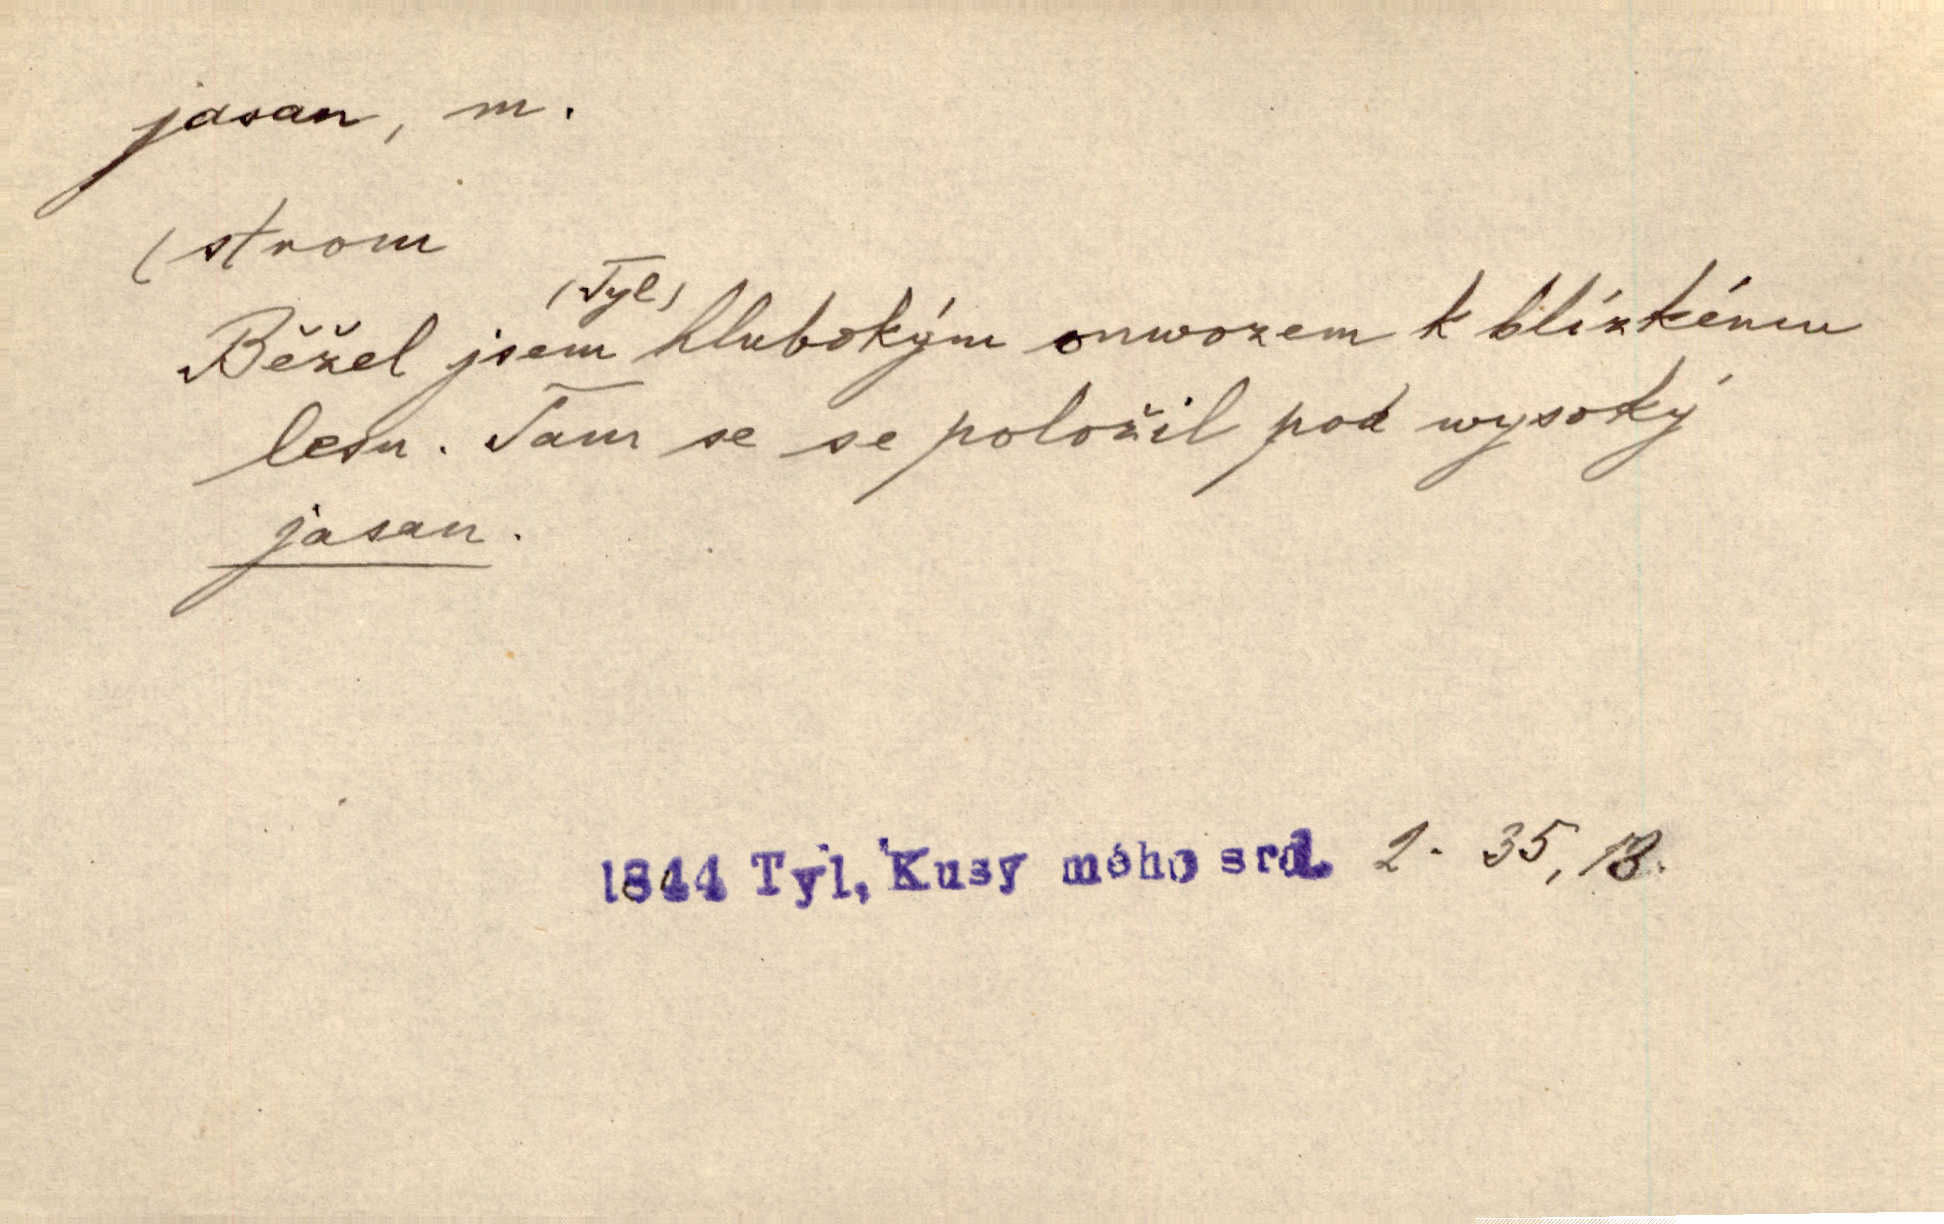 jasan, m.
(strom
(Tyl)
Běžel jsem hlubokým ouwozem k blízkému
lesu. Tam se se položil pod wysoký
jasan.
1844 Tyl, Kusy mého srd. 2. 35, 18.